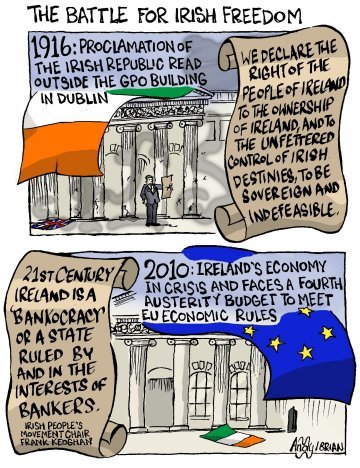 THE BATTLE FOR IRISH FREEDOM
1916: PROCLAMATION OF
THE IRISH REPUBLIC READ
OUTSIDE THE GPO BUILDING
IN DUBLIN
WE DECLARE THE
RIGHT OF THE
PEOPLE OF IRELAND
TO THE OWNERSHIP
OF IRELAND, AND TO
THE UNFETTERED
CONTROL OF IRISH
DESTINIES, TO BE
SOVEREIGN AND
INDEFEASIBLE.
21ST CENTURY
IRELAND IS A
'BANKOCRACY'
OR A STATE
RULED BY
AND IN THE
INTERESTS OF
BANKERS.
IRISH PEOPLE'S
MOVEMENT CHAIR
FRANK KEOGHAN
2010: IRELAND'S ECONOMY
IN CRISIS AND FACES A FOURTH
AUSTERITY BUDGET TO MEET
EU ECONOMIC RULES
BRIAN